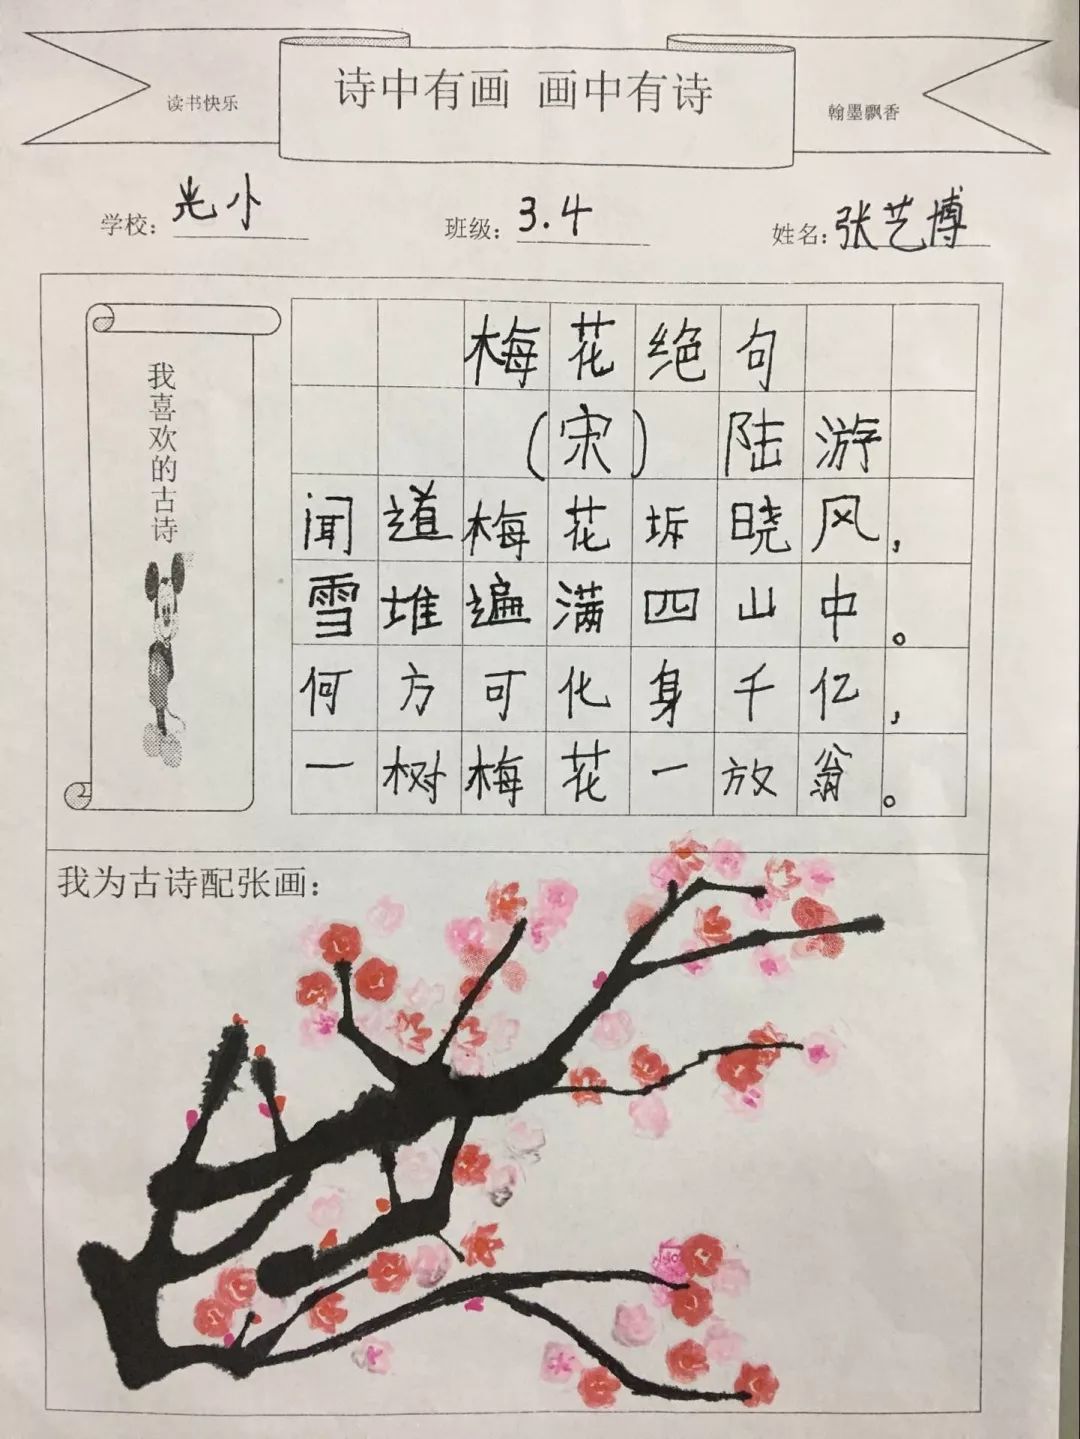 诗中有画 画中有诗
读书快乐
翰墨飘香
学校：光小 班级：3.4 姓名：张艺博
我喜欢的古诗
梅花绝句
（宋） 陆游
闻道梅花坼晓风，
雪堆遍满四山中。
何方可化身千亿，
一树梅花一放翁。
我为古诗配张画：